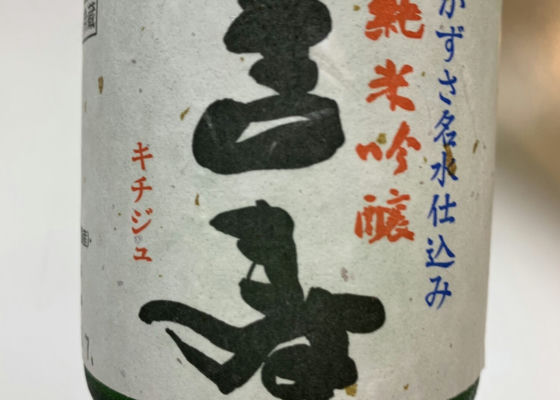 かずさ名水仕込み
純米吟醸
吉寿
キチジュ